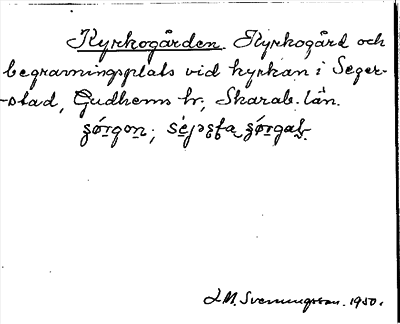 Kyrkogården. Kyrkogård och
begravningsplats vid kyrkan i Seger-
-stad, Gudhems hr, Skarab. län.
J.M. Svenungsson. 1950.